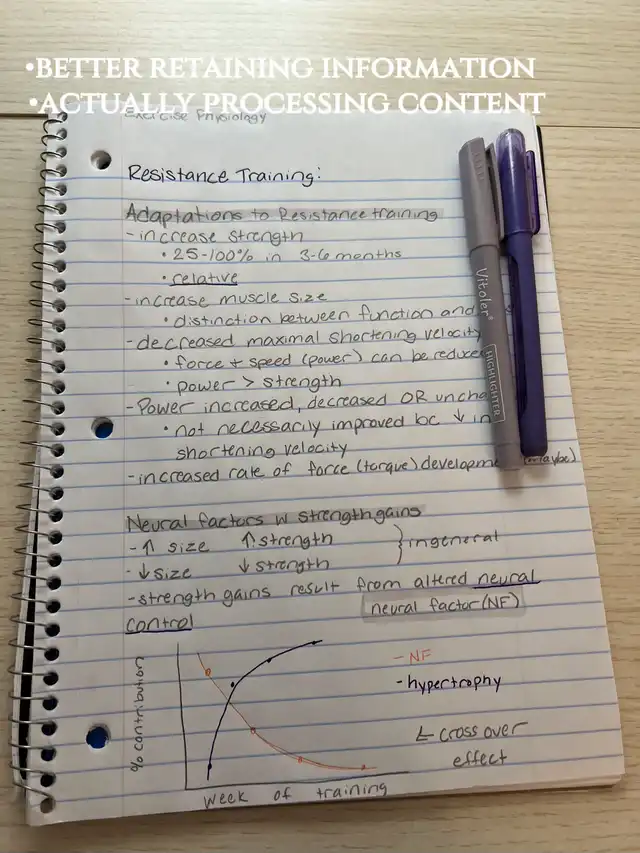 •BETTER RETAINING INFORMATION
•ACTUALLY PROCESSING CONTENT
Exercise Physiology
Resistance Training:
Adaptations to Resistance training
-increase strength
•25-100% in 3-6 months
•relative
-increase muscle size
•distinction between function and
-decreased maximal shortening velocity
•force + speed (power) can be reduce
•power > strength
-Power increased, decreased OR uncha
•not necessarily improved bc ↓ in
shortening velocity
-increased rate of force (torque) developme (maybe)
Vitoler®
HIGHLIGHTER
Neural factors w strength gains
-↑ size ↑ strength
-↓ size ↓ strength
} in general
-strength gains result from altered neural
control
neural factor (NF)
% contribution
- NF
- hypertrophy
← cross over
effect
week of training